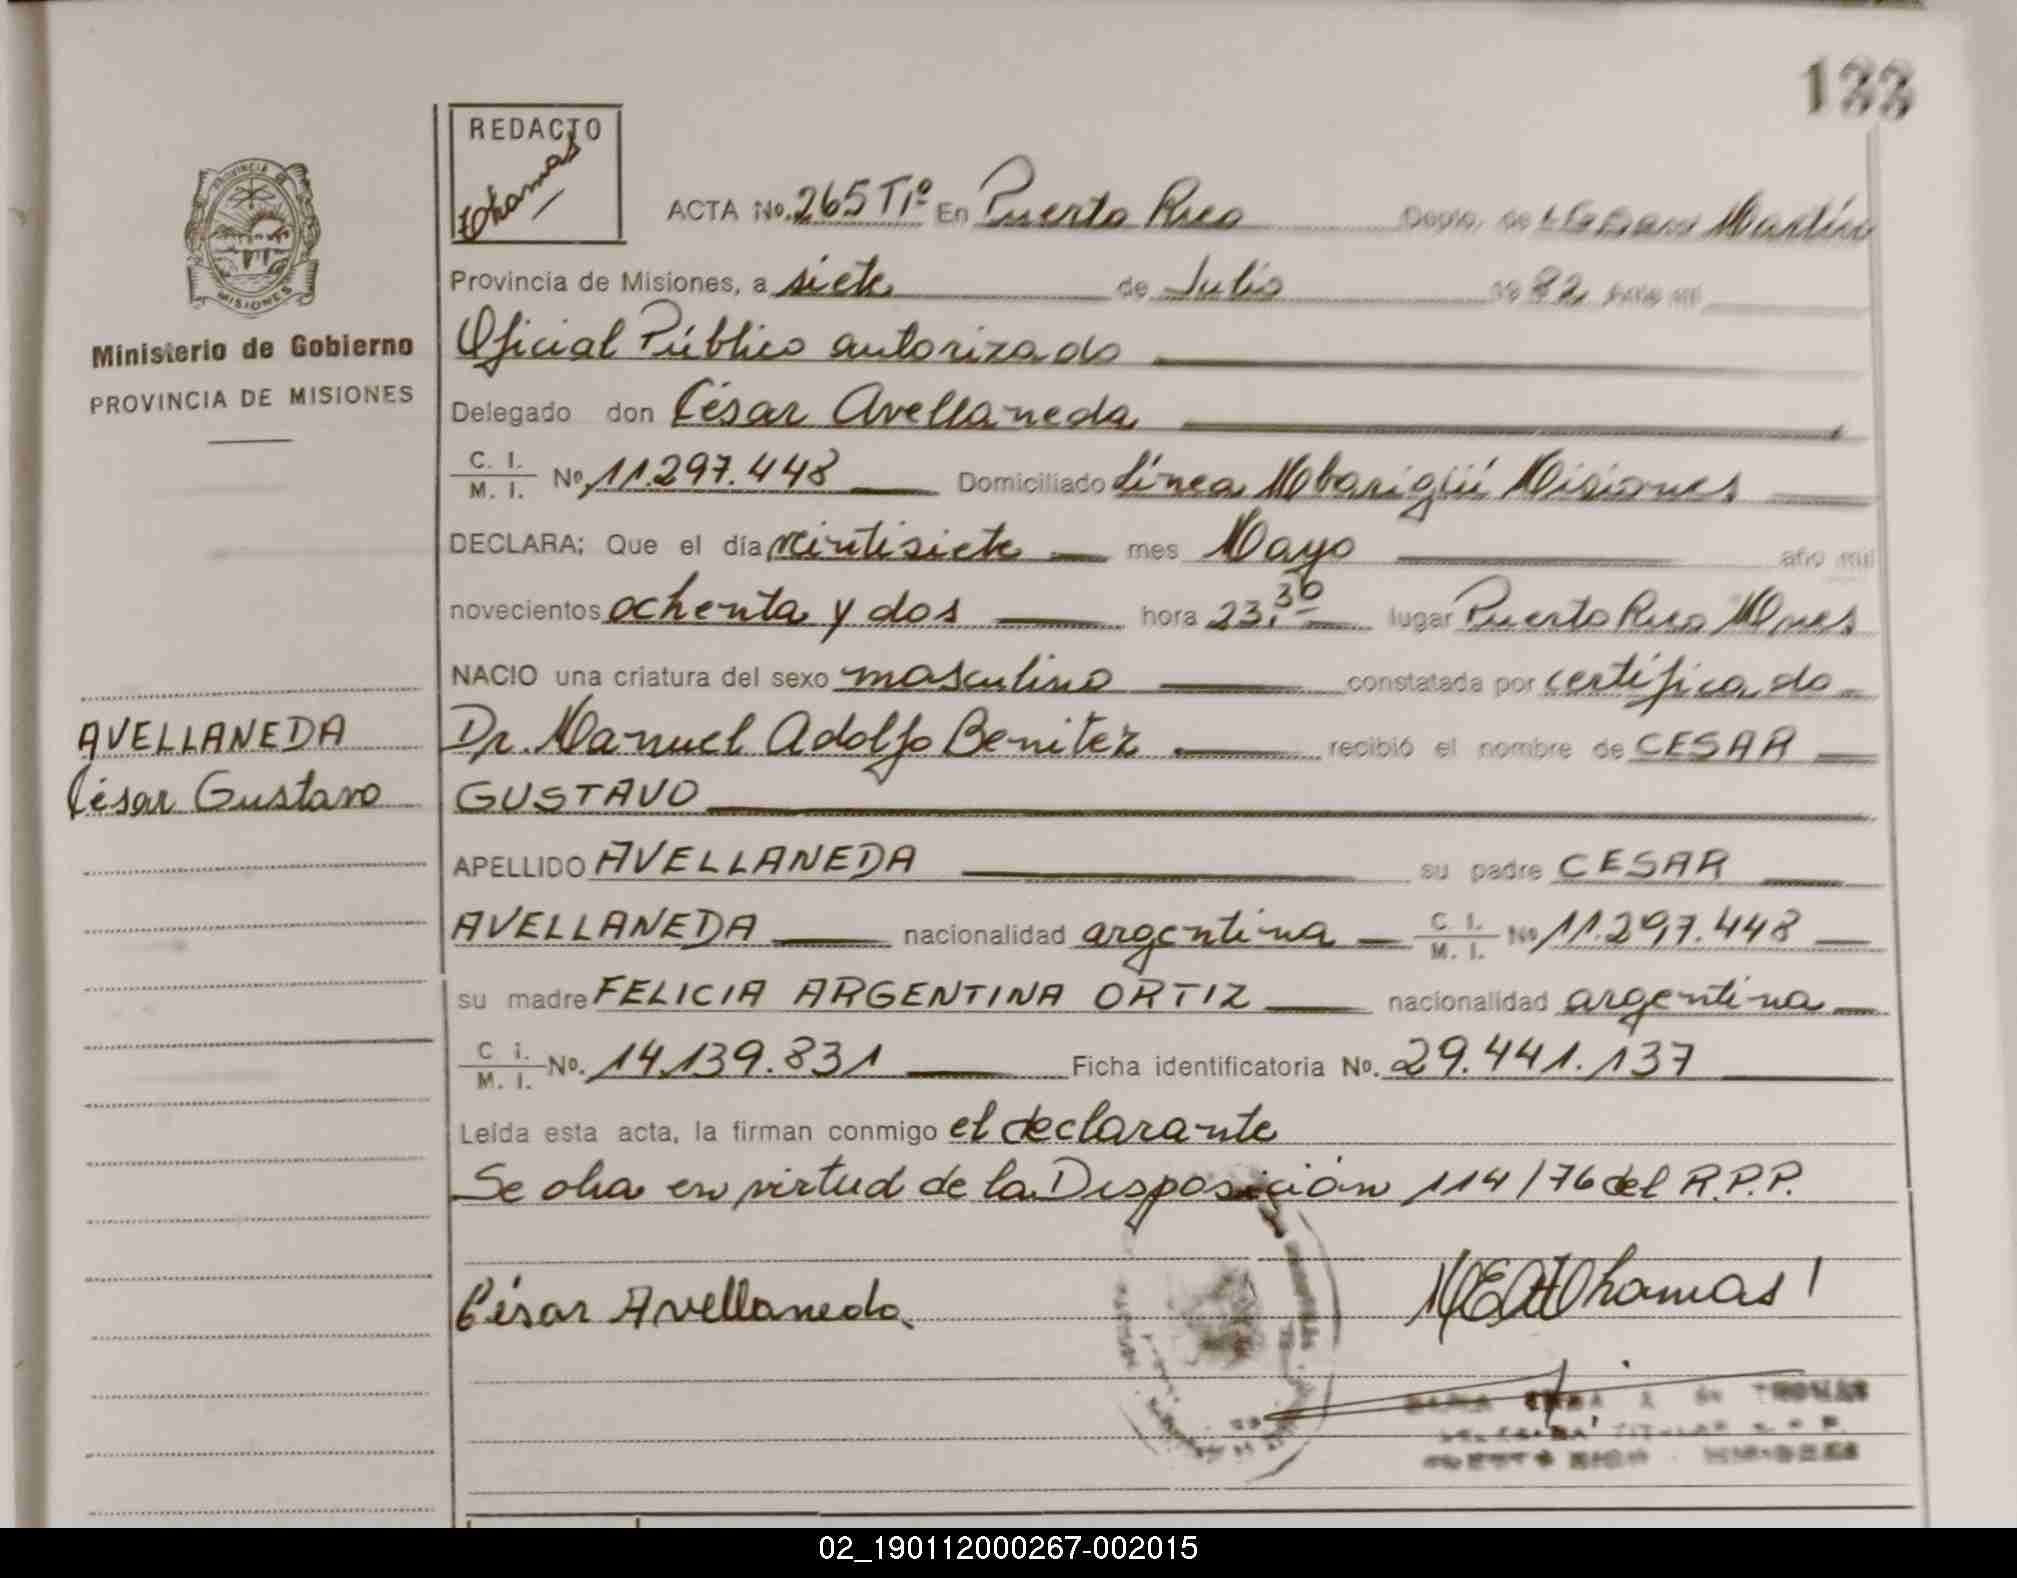 133
REDACTO
Thomas
PROVINCIA DE
MISIONES
Ministerio de Gobierno
PROVINCIA DE MISIONES
ACTA No. 265 Tº En Puerto Rico Depto. de Lib. Gral San Martín
Provincia de Misiones, a siete de Julio 1982 ante mí
Oficial Público autorizado
Delegado don César Avellaneda
C. I. / M. I. No 11.297.448 Domiciliado Línea Mbarigüí Misiones
DECLARA; Que el día veintisiete mes Mayo año mil
novecientos ochenta y dos hora 23,30 lugar Puerto Rico Mnes
NACIO una criatura del sexo masculino constatada por certificado
AVELLANEDA
César Gustavo
Dr. Manuel Adolfo Benitez recibió el nombre de CESAR
GUSTAVO
APELLIDO AVELLANEDA su padre CESAR
AVELLANEDA nacionalidad argentina C. I. / M. I. No 11.297.448
su madre FELICIA ARGENTINA ORTIZ nacionalidad argentina
C i. / M. I. No. 14.139.831 Ficha identificatoria No. 29.441.137
Leída esta acta, la firman conmigo el declarante
Se oha en virtud de la Disposición 114/76 del R.P.P.
César Avellaneda
Thomas
THOMAS
TITULAR
PUERTO RICO - MISIONES
02_190112000267-002015